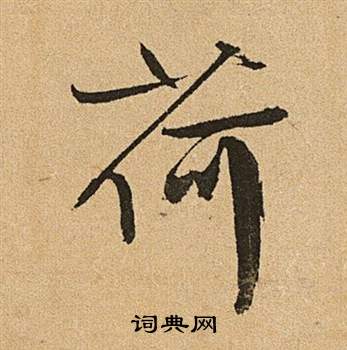 荷
词典网